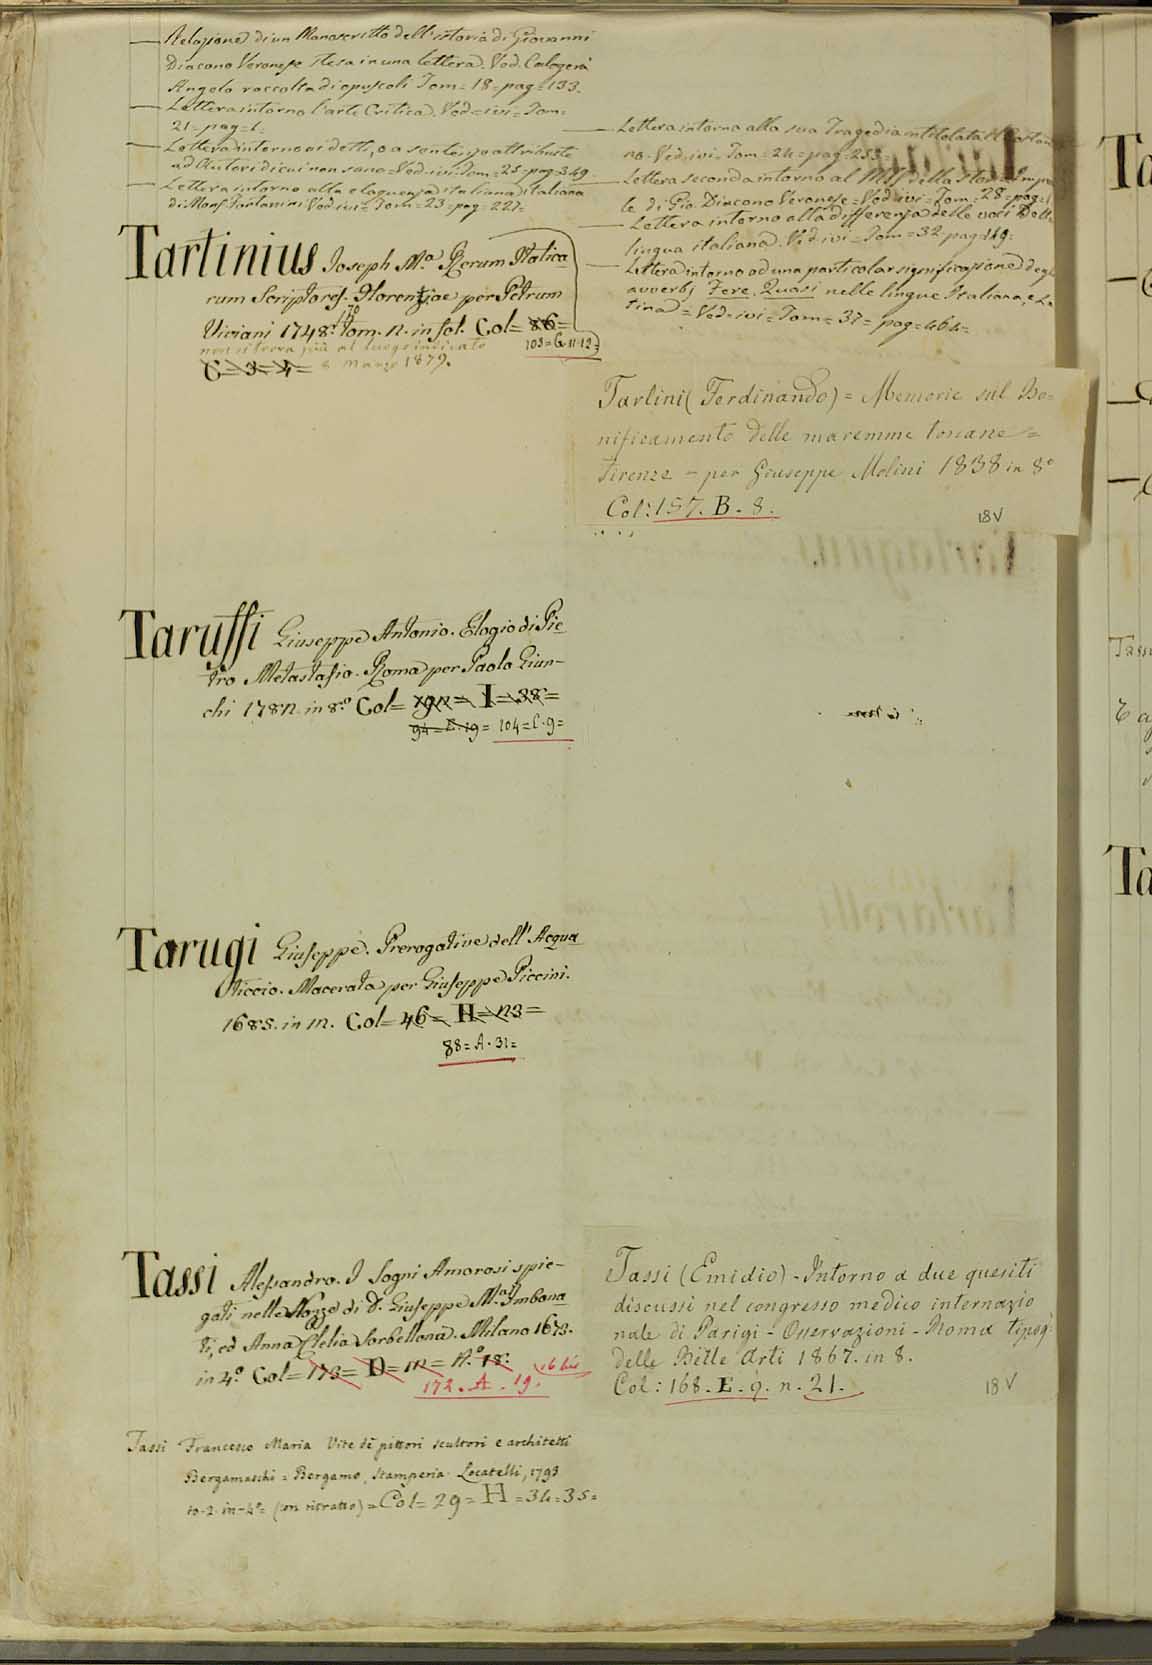 — Relazione di un Manoscritto dell'istoria di Giovanni
Diacono Veronese stesa in una lettera. Ved. Calogerà
Angelo raccolta di opuscoli Tom= 18= pag= 133.
— Lettera intorno l'arte Critica. Ved= ivi= Tom=
21= pag= 1.
— Lettera intorno ai detti, o a sentenze attribuite
ad Autori di cui non sono= Ved= ivi= Tom= 25= pag= 349.
— Lettera intorno alla eloquenza italiana italiana
di Mons. Fontanini Ved= ivi= Tom= 23= pag= 227=
Tartinius Joseph M.a Rerum Italica
rum Scriptores. Florentiae per Petrum
Viviani 1748. 1770 Tom. 2. in fol. Col= 86=
103= G. 11. 12=
non si trova più al luogo indicato
C= 3= 4= 8 Marzo 1879.
Taruffi Giuseppe Antonio. Elogio di Pie
tro Metastasio. Roma per Paolo Giun-
chi 1782. in 8.o Col= 192= I= 38=
94= E. 19= 104= C. 9=
Tarugi Giuseppe. Prerogative dell'Acqua
ticcio. Macerata per Giuseppe Piccini.
1685. in 12. Col= 46= H= 23=
88= A. 31=
Tassi Alessandro. I Sogni Amorosi spie-
gati nelle Nozze di D. Giuseppe M.a Imbona
ti, ed Anna Clelia Sorbellona. Milano 1673.
in 4.o Col= 173= D= 12= N.o 18.
172. A. 19. 16 bis
Tassi Francesco Maria Vite de' pittori scultori e architetti
Bergamaschi= Bergamo, stamperia Locatelli, 1793
to. 2. in-4o= (con ritratto)= Col= 29= H= 34= 35=
— Lettera intorno alla sua Tragedia intitolata il
no. Ved= ivi= Tom= 24= pag= 253
— Lettera seconda intorno al MS. della Stor. Impe
le di Gio. Diacono Veronese= Ved= ivi= Tom= 28= pag=
— Lettera intorno alla differenza delle voci Della
lingua italiana. Ved= ivi= Tom= 32 pag= 149=
— Lettera intorno ad una particolar significazione degl
avverbj Fere, Quasi nelle lingue Italiana, e La
tina= Ved= ivi= Tom= 37= pag= 464=
Tarlini (Ferdinando)= Memorie sul Bo=
nificamento delle maremme toscane=
Firenze - per Giuseppe Molini 1838 in 8o
Col: 157. B. 8.
18V
Tassi (Emidio) - Intorno a due quesiti
discussi nel congresso medico internazio
nale di Parigi - Osservazioni - Roma tipog:
delle Belle Arti 1867. in 8.
Col: 168. E. 9. n. 21.
18V